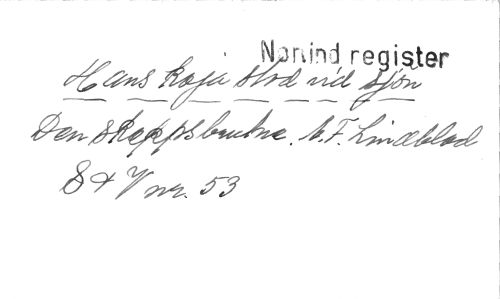 Norlind register
Hans koja stod vid sjön
Den skeppsbrutne. C. F. Lindblad
S & V nr. 53